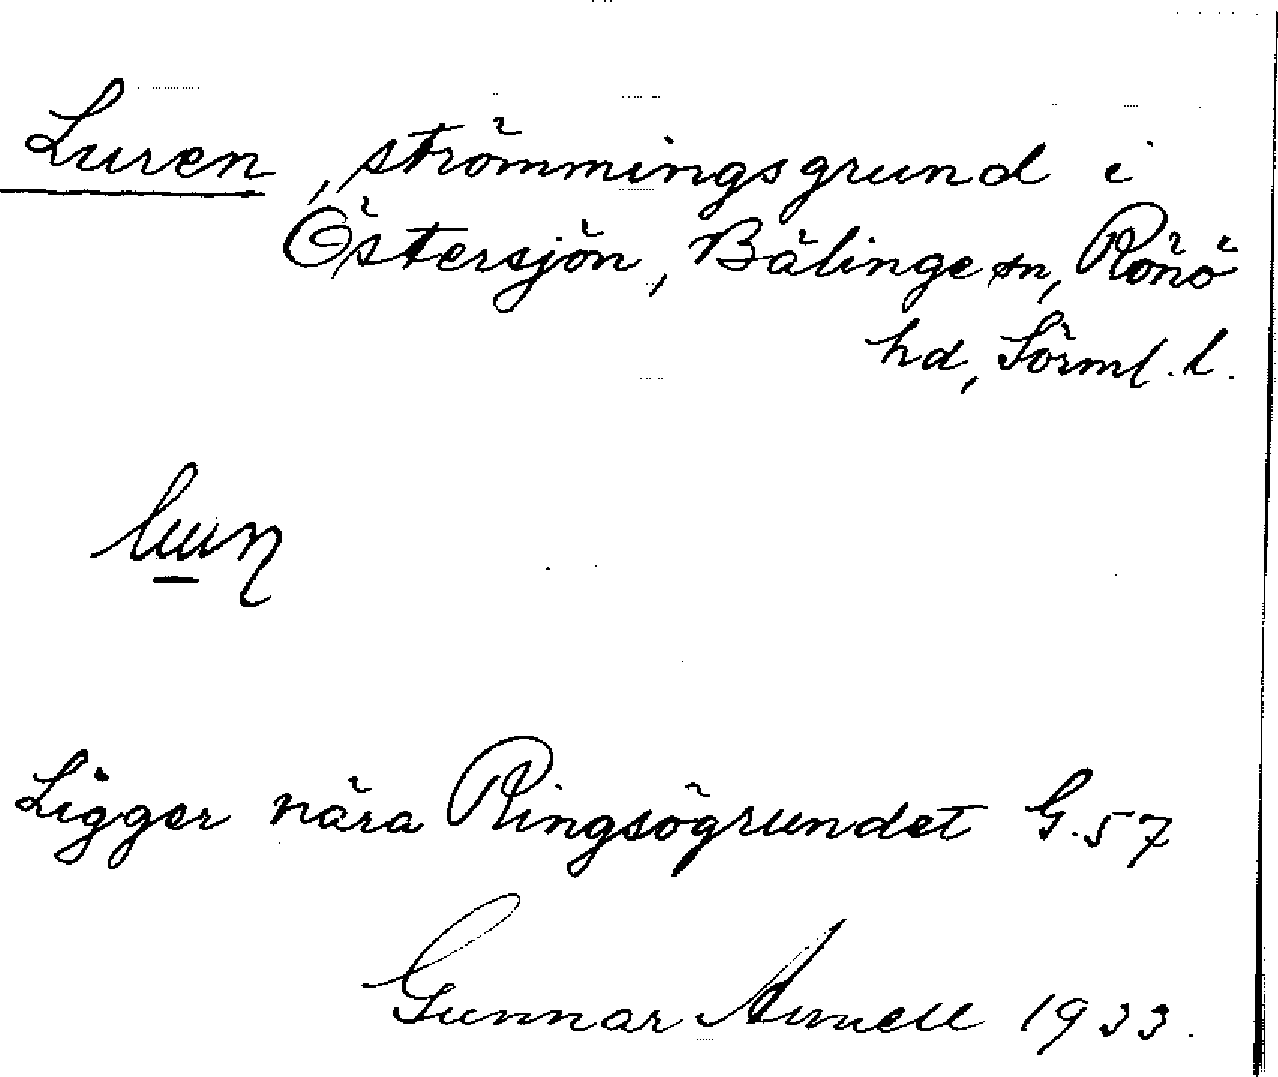 Luren, strömmingsgrund i
Östersjön, Bälinge sn, Rönö
hd, Sörml. l.
Ligger nära Ringsögrundet G. 57
Gunnar Arnell 1933.